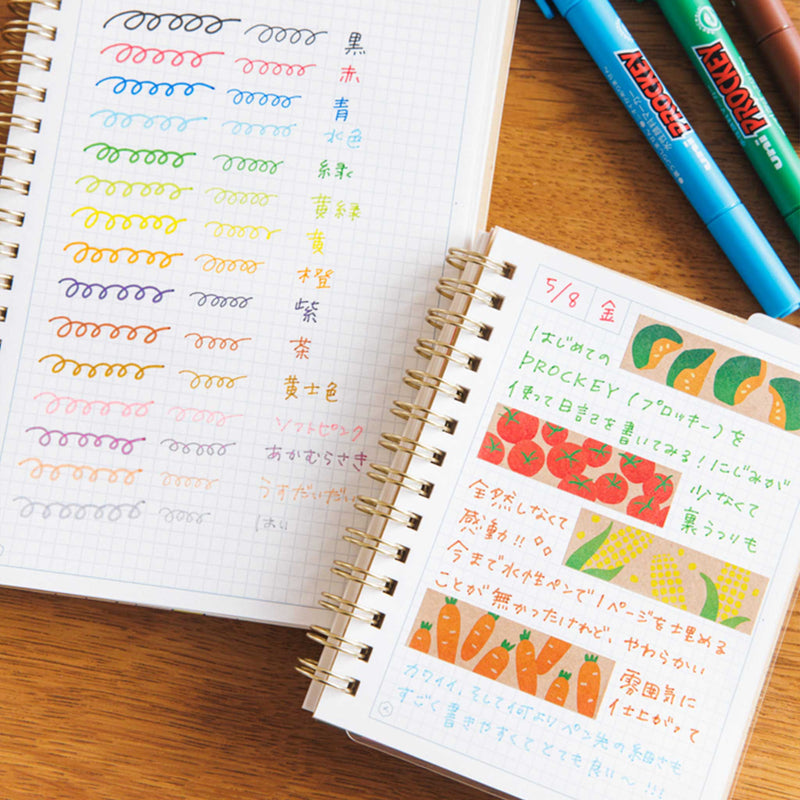 黒
赤
青
水色
緑
黄緑
黄
橙
紫
茶
黄土色
ソフトピンク
あかむらさき
うすだいだい
はい
5/8 金
はじめての
PROCKEY(プロッキー)を
使って日記を書いてみる!にじみが
少なくて
裏うつりも
全然しなくて
感動!!◇◇
今まで水性ペンで1ページを埋める
ことが無かったけれど、やわらかい
雰囲気に
仕上がって
カワイイ、そして何よりペン先の細さも
すごく書きやすくてとても良い〜!!!
uni PROCKEY
水性顔料マーカー
uni PROCKEY